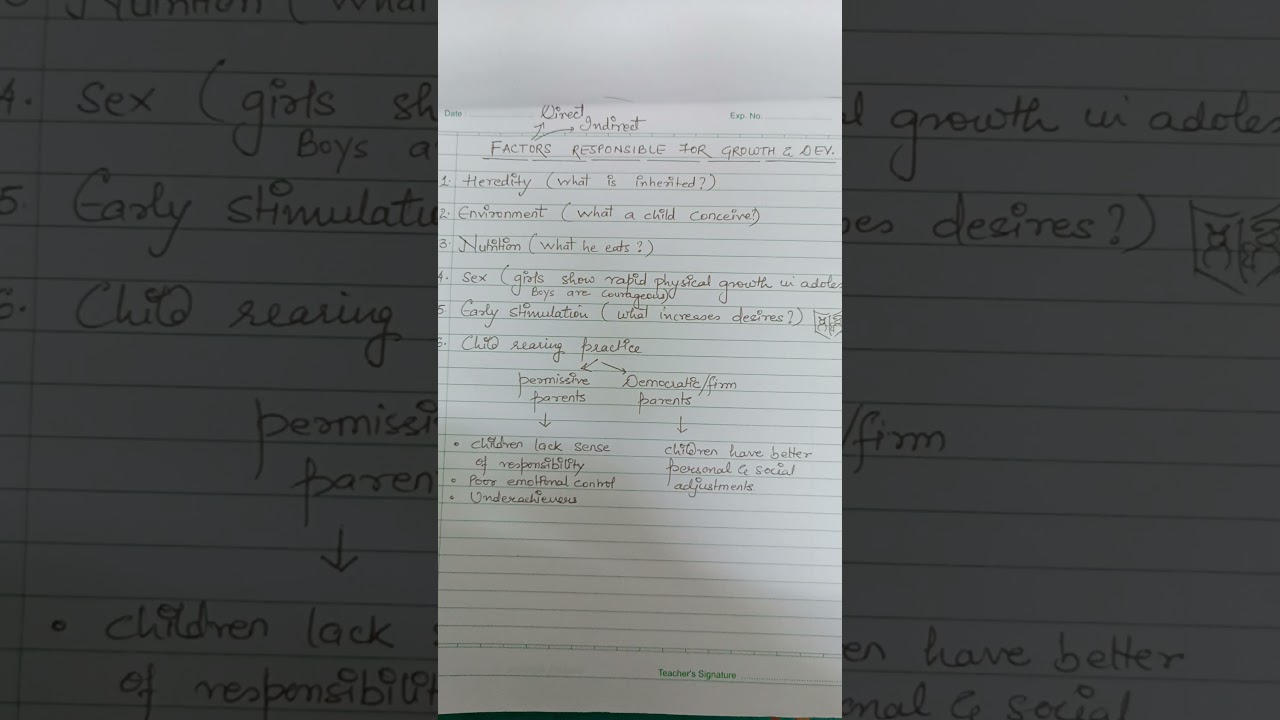 Date :
Direct
Exp. No.
Indirect
FACTORS RESPONSIBLE FOR GROWTH & DEV.
1. Heredity (what is inherited?)
2. Environment (what a child conceive?)
3. Nutrition (what he eats?)
4. Sex (girls show rapid physical growth in adoles
Boys are courageous)
5. Early stimulation (what increases desires?)
6. Child rearing practice
permissive Democratic/firm
parents parents
• children lack sense children have better
of responsibility personal & social
• Poor emotional control adjustments
• Underachievers
Teacher's Signature